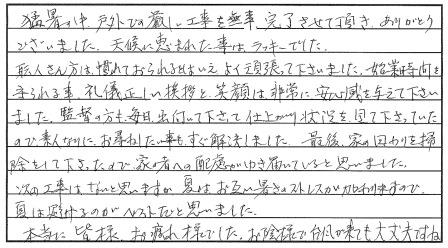 猛暑の中、戸外での厳しい工事を無事、完了させて頂き、ありがとう
ございました。天候に恵まれた事は、ラッキーでした。
職人さん方は、慣れておられるとはいえ、よく頑張って下さいました。始業時間を
守られる事、礼儀正しい挨拶と、笑顔は非常に安心感を与えて下さい
ました。監督の方も毎日出向いて下さって仕上がり状況を見て下さっていた
ので素人なりに、お尋ねしたい事もすぐ解決しました。最後、家の回りを掃
除をして下さったので、家の者への配慮がゆき届いていると思いました。
次の工事はないと思いますが、夏はお互い暑さのストレスが加わりますので、
夏は避けるのがベストだと思いました。
本当に皆様、お疲れ様でした。お陰様で台風が来ても大丈夫ですね